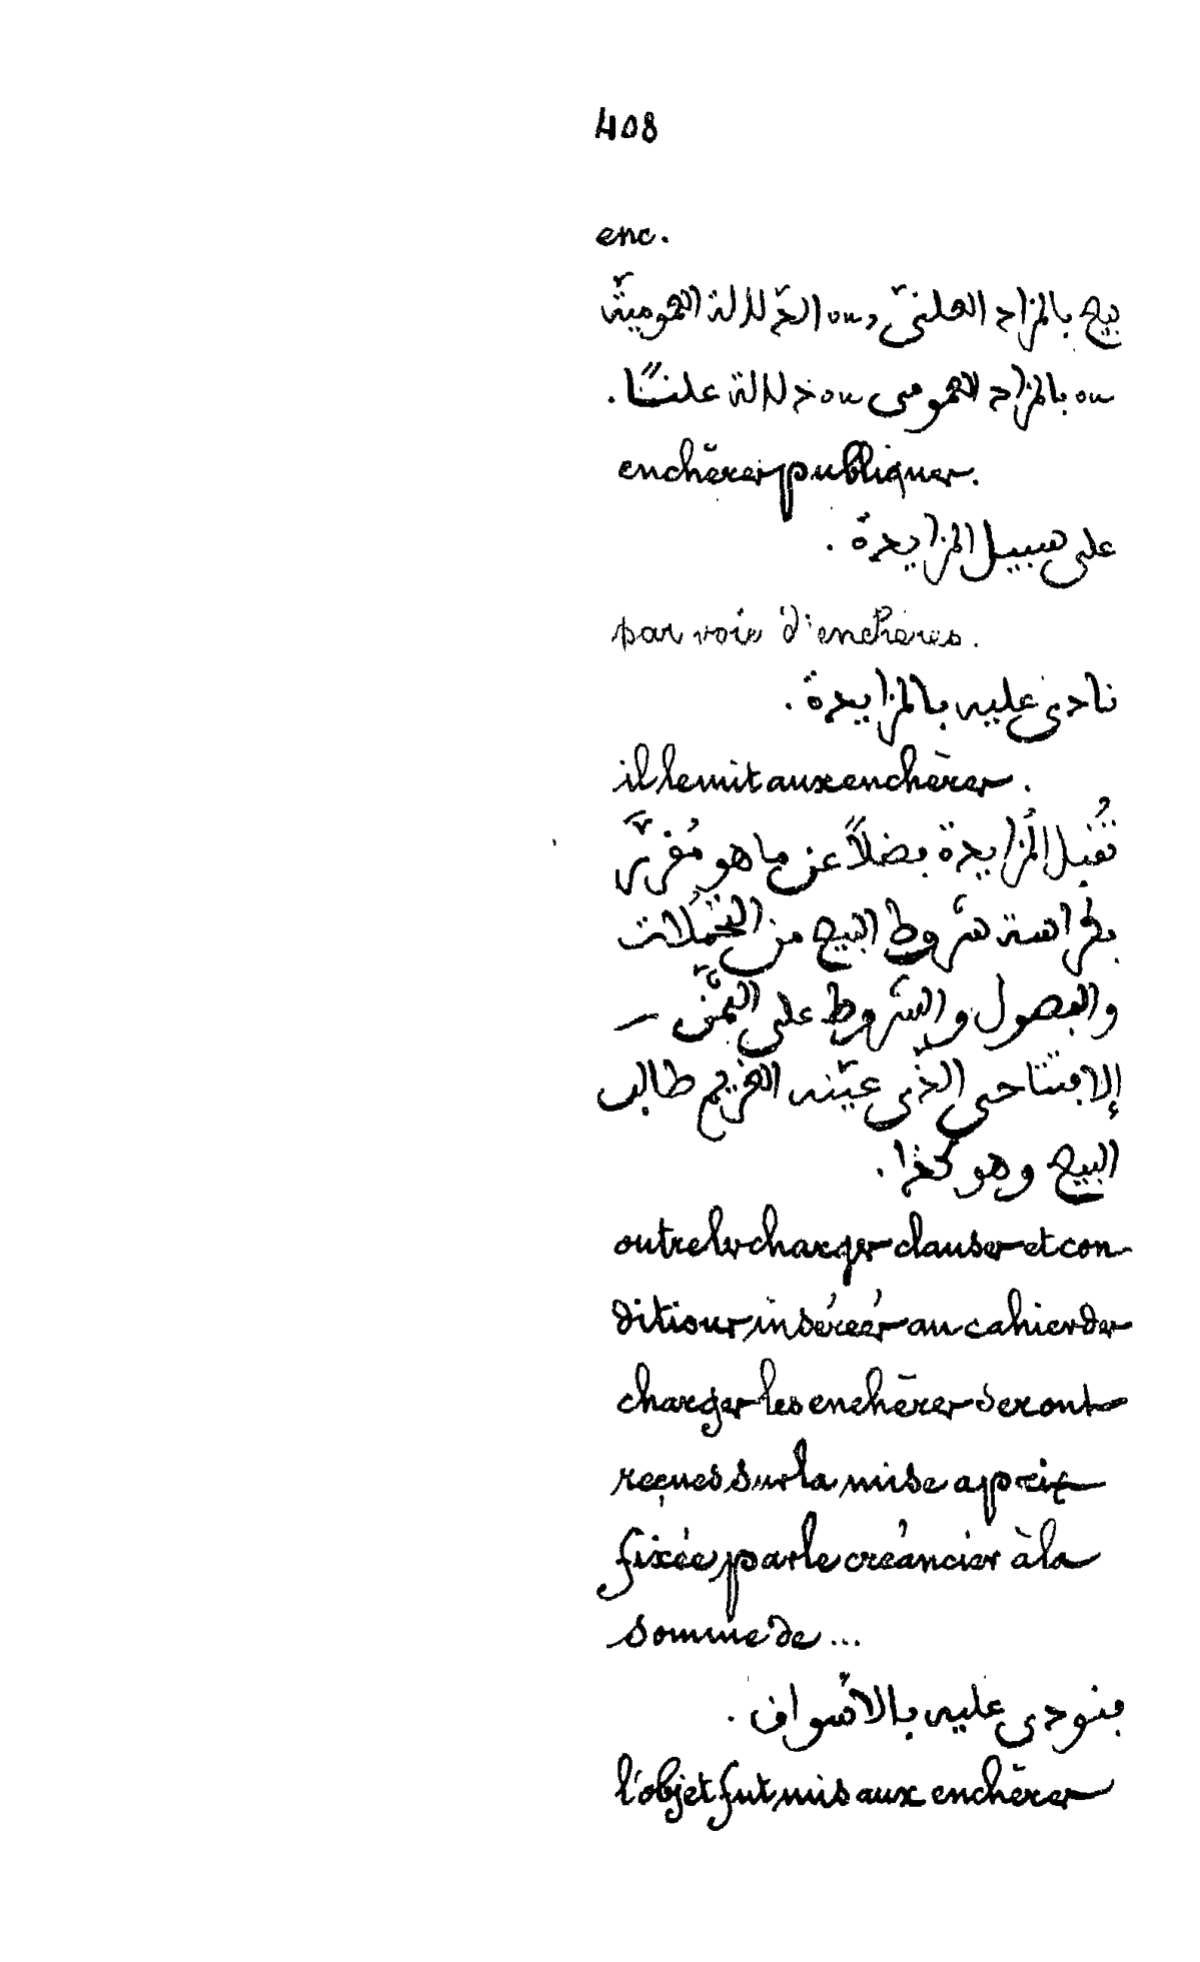 408
enc.
بيع بالمزاد العلنيّ ou الدّلالة العموميّة
ou بالمزاد العمومى ou دلالة علنيًّا.
enchères publiques.
على سبيل المزايدة.
par voie d'enchères.
نادى عليه بالمزايدة.
il le mit aux enchères.
تُقبل المُزايدة فضلاً عن ما هو مُقرّر
بكراسة شروط البيع من التحمّلات
والفصول والشروط على الثمن
الافتتاحى الذّى عيّنه الغريم طالب
البيع وهو كذا.
outre les charges clauses et con-
ditions insérées au cahier des
charges les enchères seront
reçues sur la mise a prix
fixée par le créancier à la
somme de...
فنودى عليه بالأسواق.
l'objet fut mis aux enchères